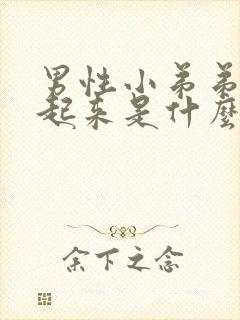 男性小弟弟
起来是什麼
余下之念